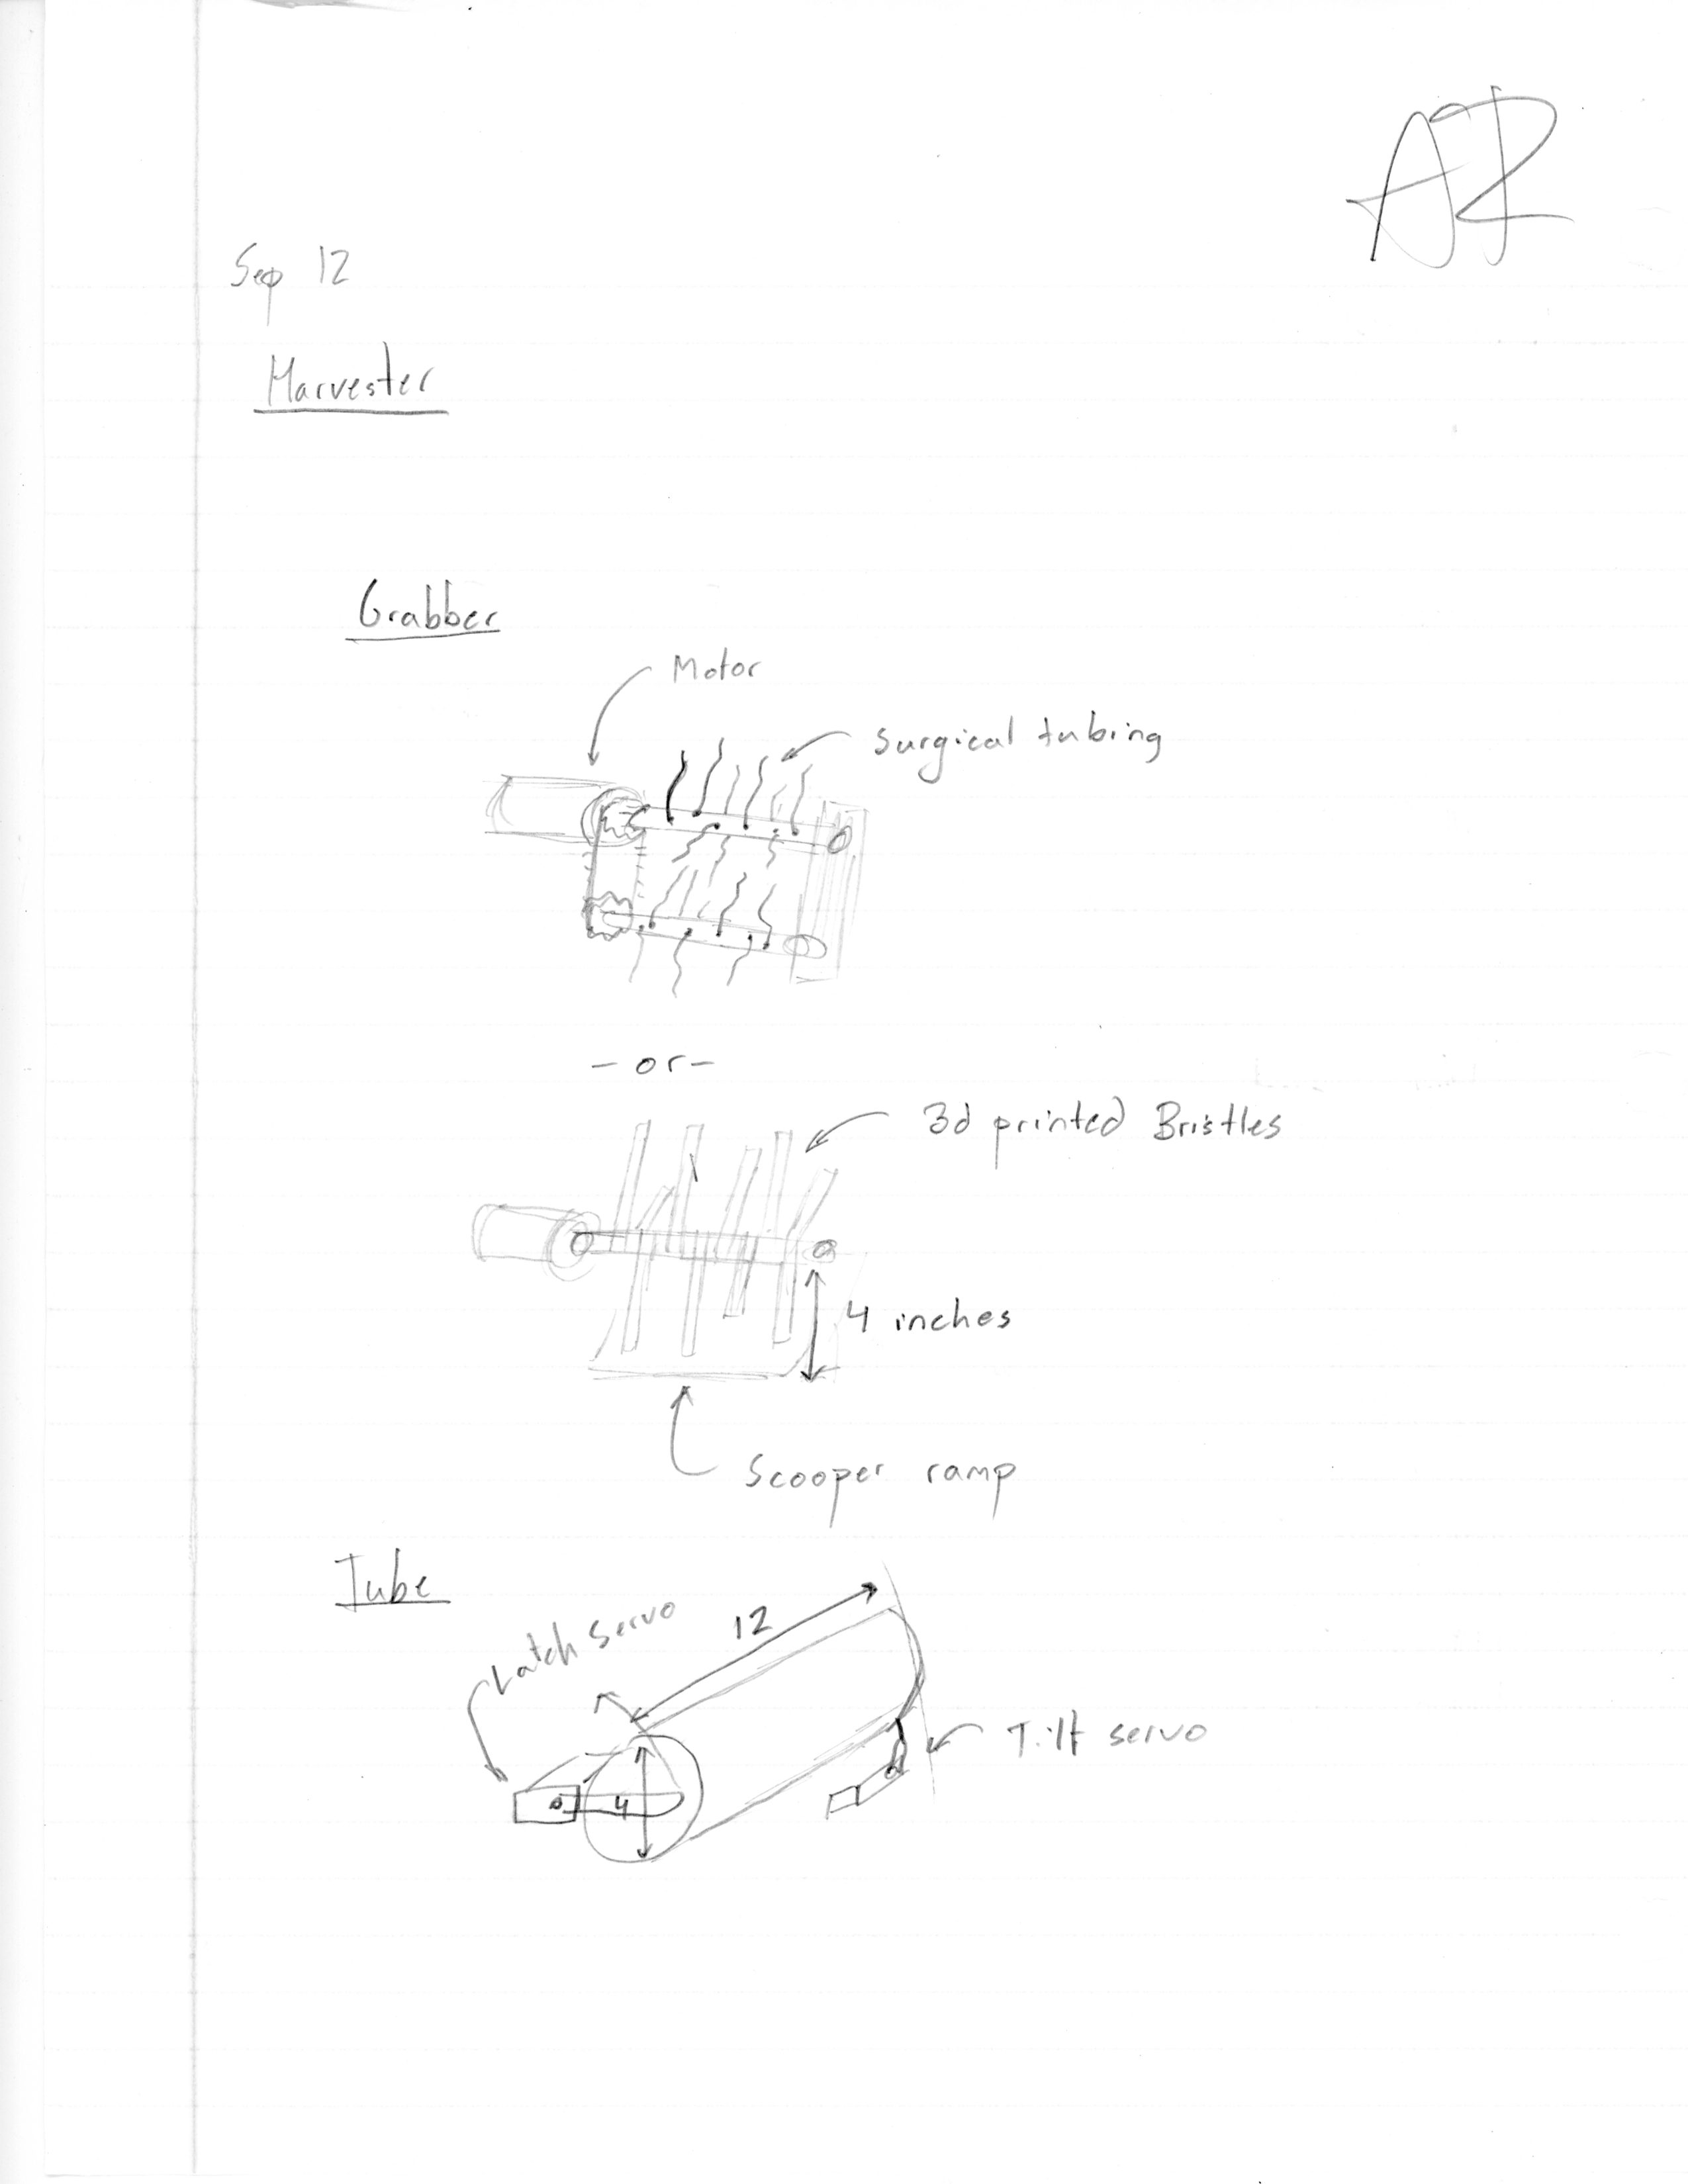 AR
Sep 12
Harvester
Grabber
Motor
surgical tubing
- or -
3d printed Bristles
4 inches
Scooper ramp
Tube
Latch servo
12
Tilt servo
4